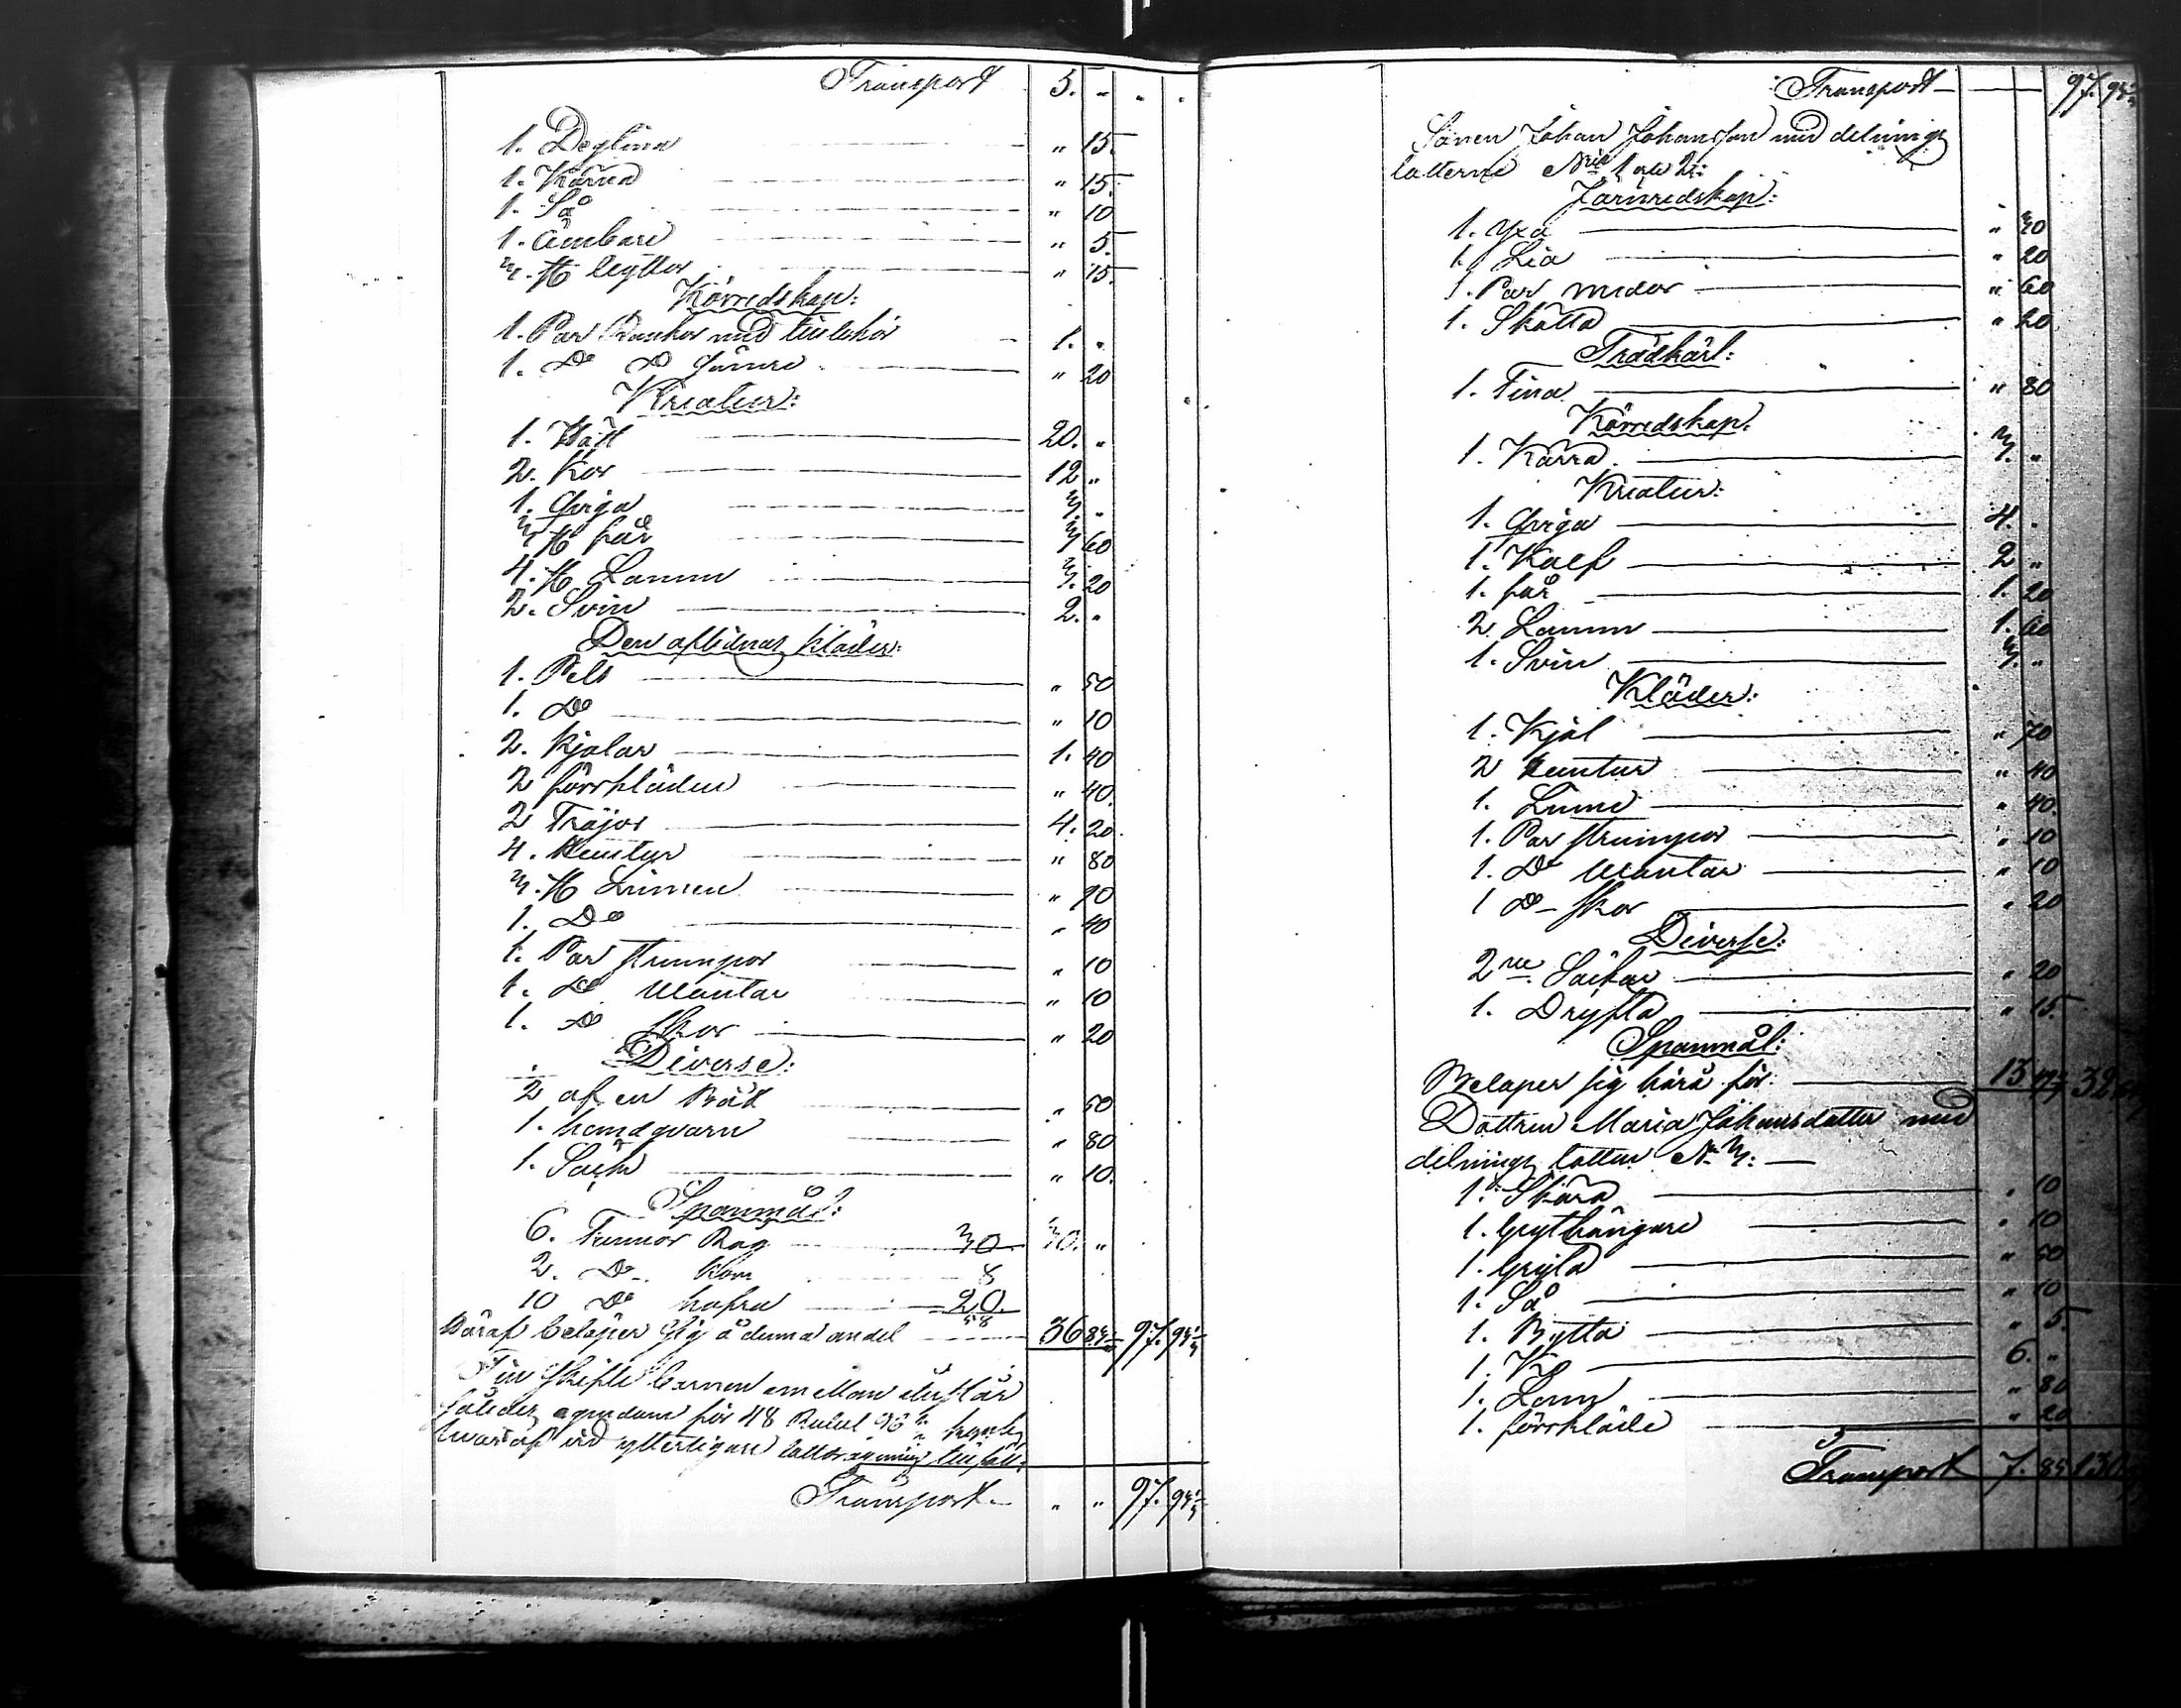 Transport 5. " " .
1. Degtina " 15.
1. Kärna " 15.
1. Så " 10
1. Ämbare " 5.
3. st Byttor " 15.
Körredskap:
1. Par Bankor med tillbehör 1. "
1. Do Do sämre " 20
Kreatur:
1. Häst 20. "
2. Kor 12 "
1. Qviga 3. "
3 st får 3 60
4. st Lamm 3. 20
2. Svin 2. "
Den aflidnas kläder:
1. Pels " 50
1. Do " 10
2. Kjolar 1. 40
2 förrkläden " 40.
2 Tröjor 4. 20.
4. " 80
3. st Linnen " 90
1. Do " 40
1. Par strumpor " 10
1. Do Vantar " 10
1. Do Skor " 20
Diverse:
2 af en Båt " 50
1. handqvarn " 80
1. Säck " 10.
Spanmål:
6. Tunnor Råg 30. 30. "
2. Do Korn 8
10 Do hafra 20.
58
Häraf belöper sig å denna andel 36 97.
Till skifte barnen emellan återstår
således egendom för 48 Rubel
hvaraf vid ytterligare lottdragning tillföll:
Transport " " 97.
Transport 97.
Sonen Johan Johansson med delnings
lotterne Nris 1 och 2:
Järnredskap:
1. Yxa " 30
1. Lia " 20
1. Par medar " 60
1. Skötta " 20
Trädkärl:
1. Tina " 30
Körredskap.
1. Kärra 3. "
Kreatur:
1. Qviga 4. "
1. Kalf 2 "
1. får 1. 20
2. Lamm 1. 60
1. Svin 3. "
Kläder:
1. Kjol " 70
2 " 40
1. Linne " 40.
1. Par strumpor " 10
1. Do Vantar " 10
1 Do Skor " 20
Diverse:
2ne Säckar " 20
1. Dryfta " 15.
Spanmål:
Belöper sig härå för: 13 32
Dottren Maria Johansdotter med
delnings lotten No 3:
1. Skära " 10
1. Grythängare " 10
1. Gryta " 50
1. Så " 10
1. Bytta " 5.
1. Ko 6. "
1. Lam " 80
1. förrkläde " 20
Transport 7. 85 130